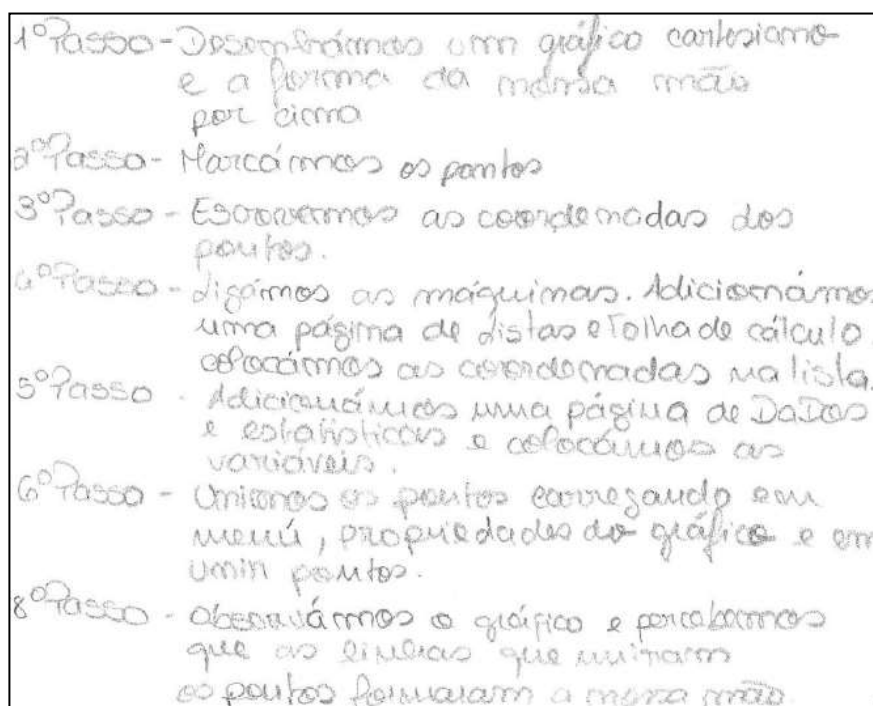 1º Passo - Desenhámos um gráfico cartesiano
e a forma da nossa mão
por cima
2º Passo - Marcámos os pontos
3º Passo - Escrevemos as coordenadas dos
pontos.
4º Passo - Ligámos as máquinas. Adicionámos
uma página de Listas e Folha de cálculo.
colocámos as coordenadas na lista.
5º Passo . Adicionámos uma página de DaDos
e estatísticas e colocámos as
variáveis.
6º Passo - Unimos os pontos carregando em
menú, propriedades do gráfico e em
Unir pontos.
8º Passo - Observámos o gráfico e percebemos
que as linhas que uniram
os pontos formaram a nossa mão